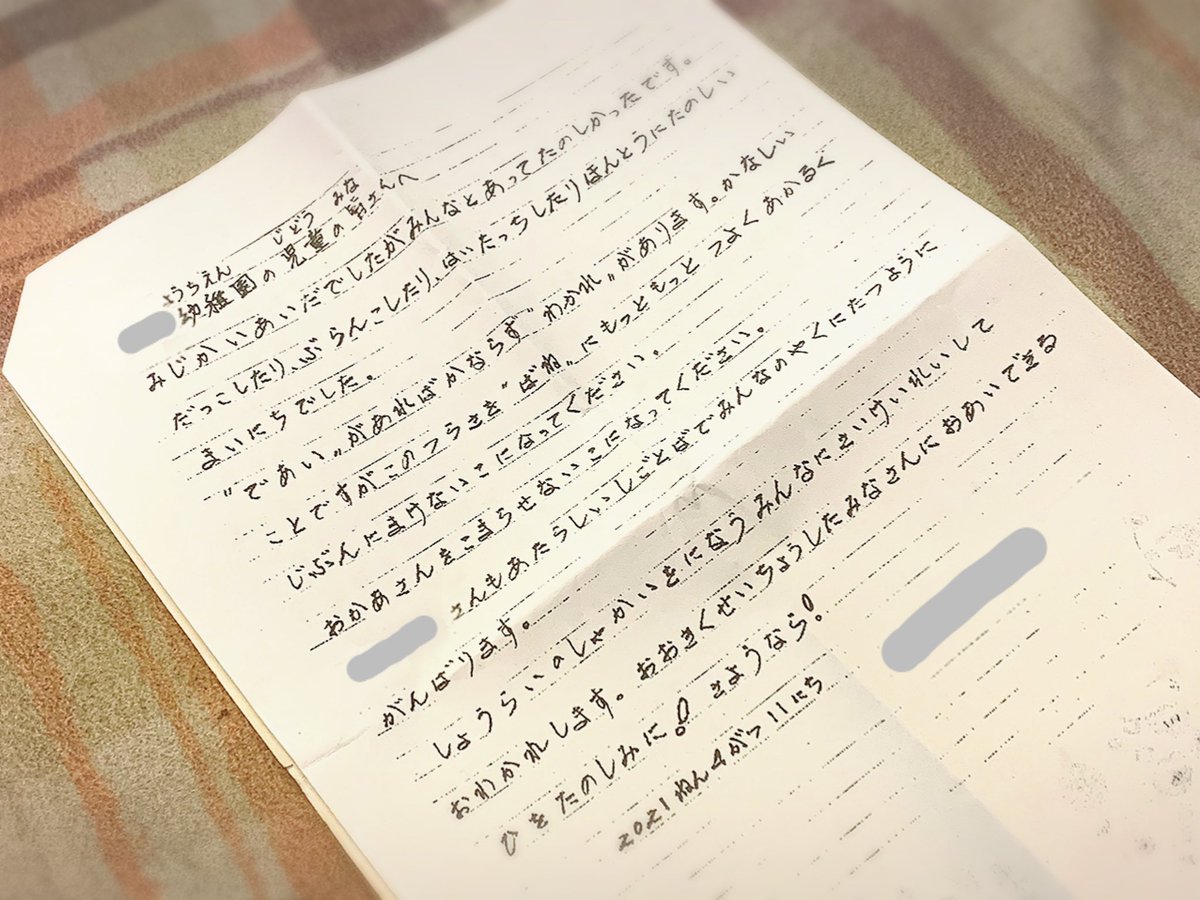 ようちえん じどう みな
幼稚園の児童の皆さんへ
みじかいあいだでしたがみんなとあってたのしかったです。
だっこしたり、ぶらんこしたり、はいたっちしたりほんとうにたのしい
まいにちでした。
"であい"があればかならず"わかれ"があります。かなしい
ことですがこのつらさを"ばね"にもっともっとつよくあかるく
じぶんにまけないこになってください。
おかあさんをこまらせないこになってください。
さんもあたらしいしごとばでみんなのやくにたつように
がんばります。
しょうらいのしゃかいをになうみんなにさいけいれいして
おわかれします。おおきくせいちょうしたみなさんにおあいできる
ひをたのしみに! さようなら!
2021ねん4がつ11にち